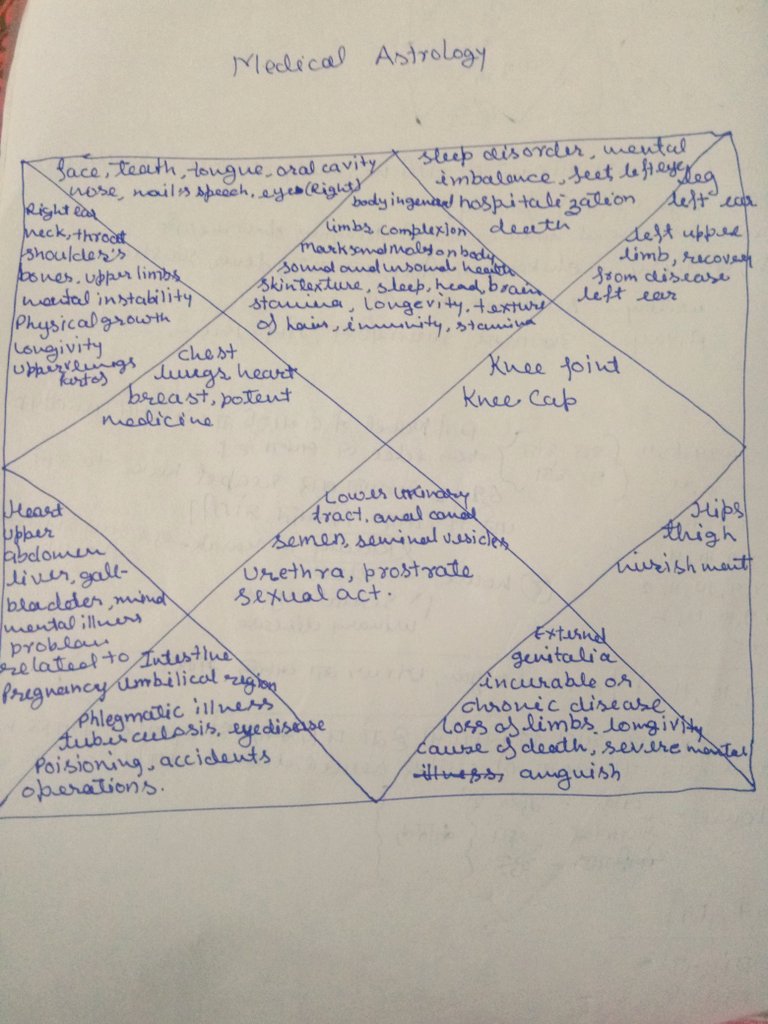 Medical Astrology
face, teath, tongue, oral cavity
nose, nails speech, eye (Right)
sleep disorder, mental
imbalance, feet, left eye
hospitalization
death
leg
left ear
left upper
limb, recovery
from disease
left ear
body in general
limbs complexion
marks and moles on body
sound and unsound health
skin texture, sleep, head, brain
stamina, longevity, texture
of hair, immunity, stamina
Right ear
neck, throat
shoulder's
bones, upper limbs
mental instability
Physical growth
longivity
upper lungs
chest
lungs, heart
breast, potent
medicine
Knee joint
Knee Cap
Heart
upper
abdomen
liver, gall-
bladder, mind
mental illness
problem
related to
Pregnancy
Lower urinary
tract, anal canal
semen, seminal vesicles
urethra, prostrate
sexual act.
Hips
thigh
Intestine
umbilical region
Phlegmatic illness
tuburculosis, eye disease
Poisioning, accidents
operations.
External
genitalia
incurable or
chronic disease
Loss of limbs, longivity
cause of death, severe mental
illness, anguish